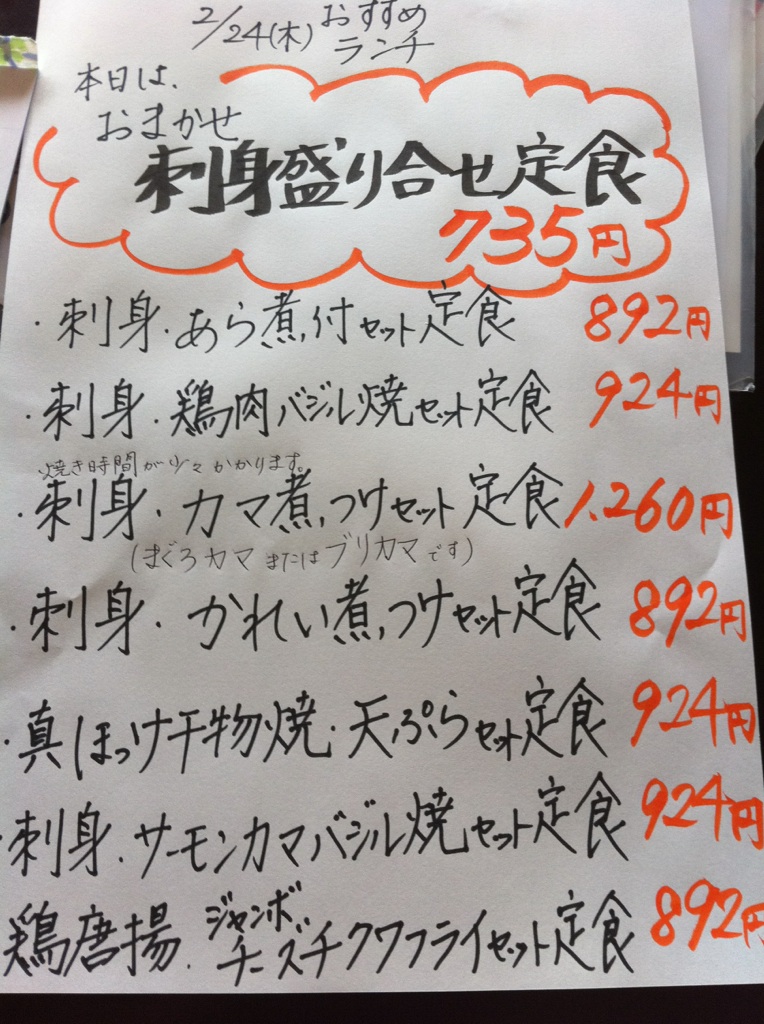 2/24(木)おすすめ
ランチ
本日は、
おまかせ
刺身盛り合せ定食
735円
・刺身・あら煮付セット定食 892円
・刺身・鶏肉バジル焼セット定食 924円
焼き時間が少々かかります。
・刺身・カマ煮つけセット定食 1,260円
(まぐろカマまたはブリカマです)
・刺身・かれい煮つけセット定食 892円
・真ほっけ干物焼・天ぷらセット定食 924円
・刺身・サーモンカマバジル焼セット定食 924円
鶏唐揚・ジャンボチーズチクワフライセット定食 892円